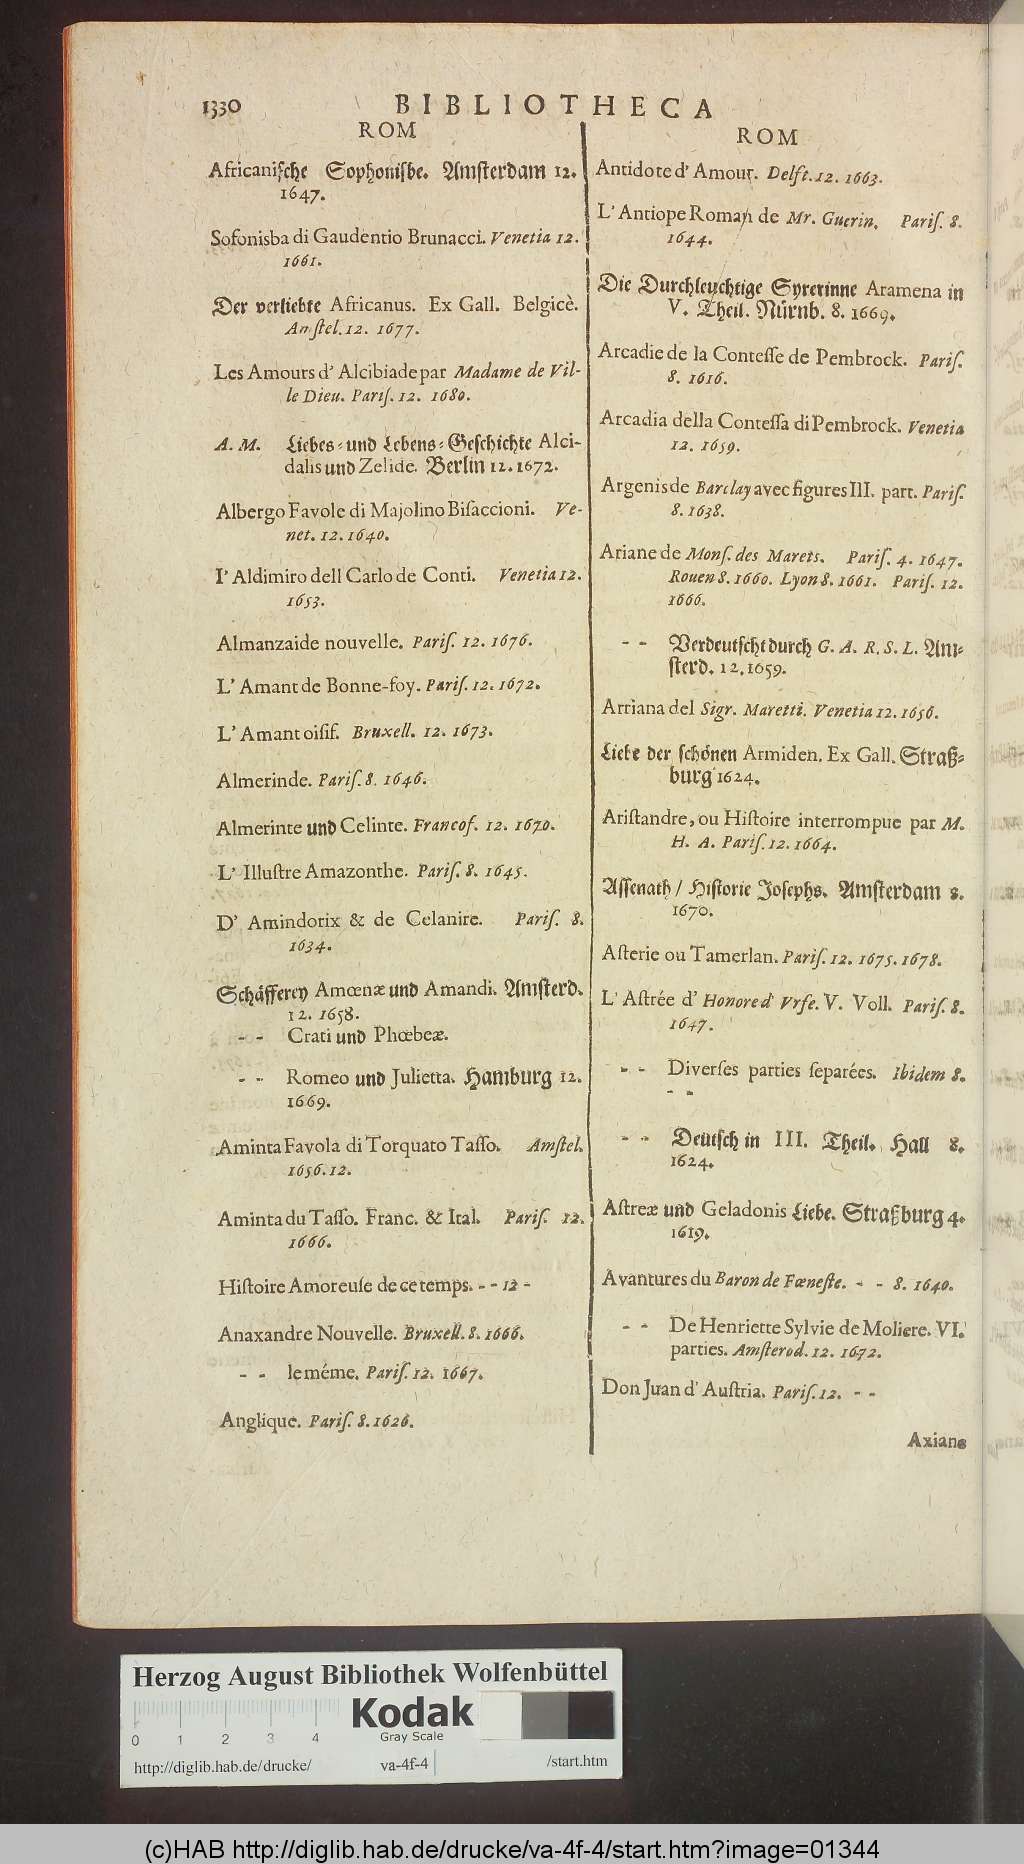 1330
BIBLIOTHECA
ROM
Africaniſche Sophoniſbe. Amſterdam 12.
1647.
Sofonisba di Gaudentio Brunacci. Venetia 12.
1661.
Der verliebte Africanus. Ex Gall. Belgicè.
Amſtel. 12. 1677.
Les Amours d' Alcibiade par Madame de Vil-
le Dieu. Pariſ. 12. 1680.
A. M. Liebes- und Lebens-Geſchichte Alci-
dalis und Zelide. Berlin 12. 1672.
Albergo Favole di Majolino Biſaccioni. Ve-
net. 12. 1640.
I' Aldimiro dell Carlo de Conti. Venetia 12.
1653.
Almanzaide nouvelle. Pariſ. 12. 1676.
L' Amant de Bonne-foy. Pariſ. 12. 1672.
L' Amant oiſif. Bruxell. 12. 1673.
Almerinde. Pariſ. 8. 1646.
Almerinte und Celinte. Francof. 12. 1670.
L' Illuſtre Amazonthe. Pariſ. 8. 1645.
D' Amindorix & de Celanire. Pariſ. 8.
1634.
Schäfferey Amœnæ und Amandi. Amſterd.
12. 1658.
- - Crati und Phœbeæ.
- - Romeo und Julietta. Hamburg 12.
1669.
Aminta Favola di Torquato Taſſo. Amſtel.
1656. 12.
Aminta du Taſſo. Franc. & Ital. Pariſ. 12.
1666.
Hiſtoire Amoreuſe de ce temps. - - 12 -
Anaxandre Nouvelle. Bruxell. 8. 1666.
- - le méme. Pariſ. 12. 1667.
Anglique. Pariſ. 8. 1626.
ROM
Antidote d' Amour. Delft. 12. 1663.
L' Antiope Roman de Mr. Guerin. Pariſ. 8.
1644.
Die Durchleuchtige Syrerinne Aramena in
V. Theil. Nürnb. 8. 1669.
Arcadie de la Conteſſe de Pembrock. Pariſ.
8. 1616.
Arcadia della Conteſſa di Pembrock. Venetia
12. 1659.
Argenis de Barclay avec figures III. part. Pariſ.
8. 1638.
Ariane de Monſ. des Marets. Pariſ. 4. 1647.
Rouen 8. 1660. Lyon 8. 1661. Pariſ. 12.
1666.
- - Verdeutſcht durch G. A. R. S. L. Am-
ſterd. 12. 1659.
Arriana del Sigr. Maretti. Venetia 12. 1656.
Liebe der ſchönen Armiden. Ex Gall. Straß-
burg 1624.
Ariſtandre, ou Hiſtoire interrompue par M.
H. A. Pariſ. 12. 1664.
Aſſenath / Hiſtorie Joſephs. Amſterdam 8.
1670.
Aſterie ou Tamerlan. Pariſ. 12. 1675. 1678.
L' Aſtrée d' Honore d' Vrfe. V. Voll. Pariſ. 8.
1647.
- - Diverſes parties ſeparées. Ibidem 8.
- -
- - Deutſch in III. Theil. Hall 8.
1624.
Aſtreæ und Geladonis Liebe. Straßburg 4.
1619.
Avantures du Baron de Fœneſte. - - 8. 1640.
- - De Henriette Sylvie de Moliere. VI.
parties. Amſterod. 12. 1672.
Don Juan d' Auſtria. Pariſ. 12. - -
Axiane
Herzog August Bibliothek Wolfenbüttel
Kodak
Gray Scale
0 1 2 3 4
http://diglib.hab.de/drucke/ va-4f-4 /start.htm
(c)HAB http://diglib.hab.de/drucke/va-4f-4/start.htm?image=01344